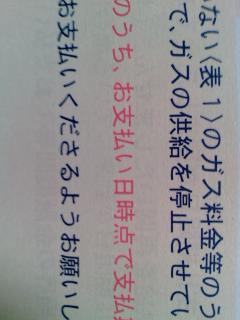 ない〈表１〉のガス料金等のう
で、ガスの供給を停止させてい
のうち、お支払い日時点で支払
お支払いくださるようお願いし